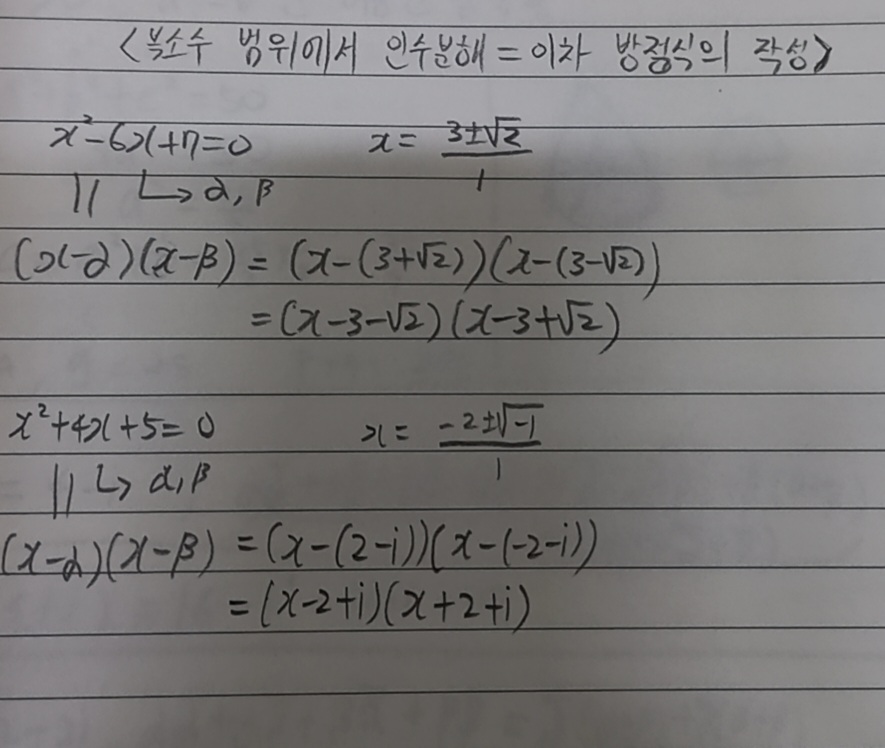 <복소수 범위에서 인수분해 = 이차 방정식의 작성>
x²-6x+7=0 x= 3±√2 / 1
|| ↳ α, β
(x-α)(x-β) = (x-(3+√2))(x-(3-√2))
= (x-3-√2)(x-3+√2)
x²+4x+5=0 x= -2±√-1 / 1
|| ↳ α, β
(x-α)(x-β) = (x-(2-i))(x-(-2-i))
= (x-2+i)(x+2+i)